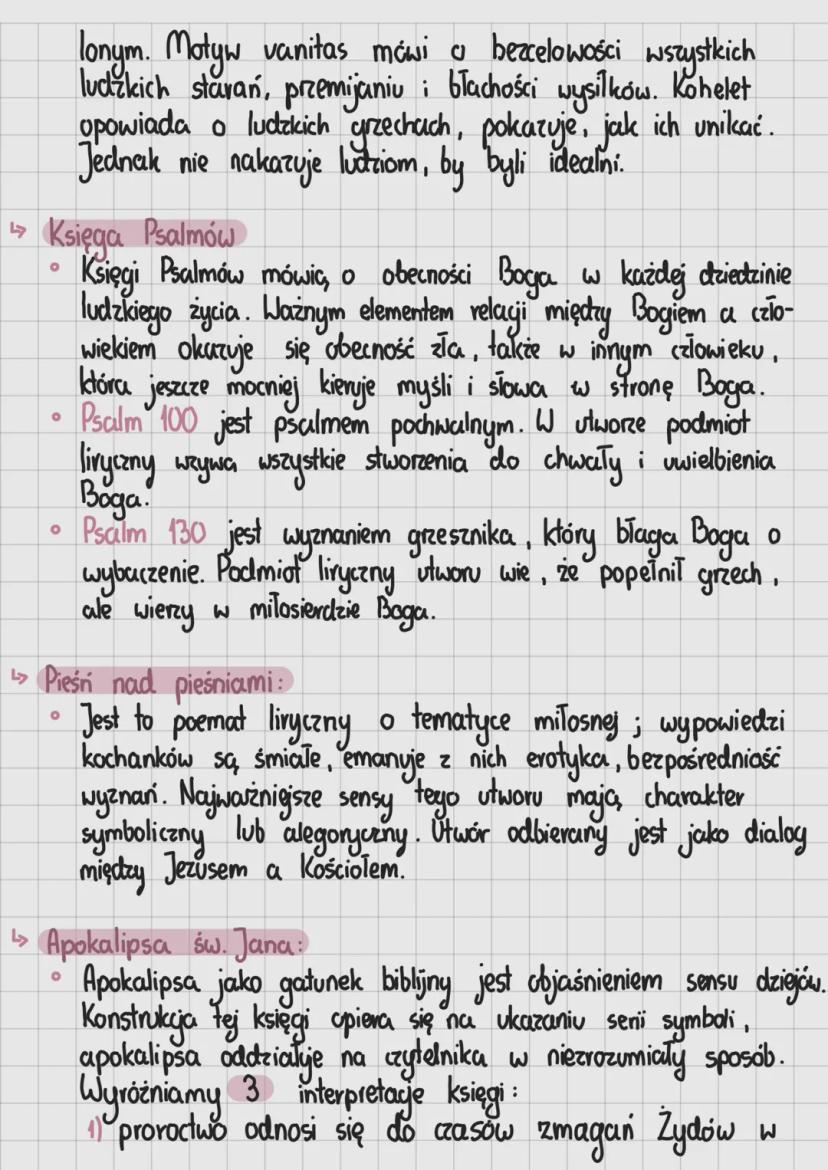 lonym. Motyw vanitas mówi o bezcelowości wszystkich
ludzkich starań, przemijaniu i błachości wysiłków. Kohelet
opowiada o ludzkich grzechach, pokazuje, jak ich unikać.
Jednak nie nakazuje ludziom, by byli idealni.
↳ Księga Psalmów
• Księgi Psalmów mówią o obecności Boga w każdej dziedzinie
ludzkiego życia. Ważnym elementem relacji między Bogiem a czło-
wiekiem okazuje się obecność zła, także w innym człowieku,
która jeszcze mocniej kieruje myśli i słowa w stronę Boga.
• Psalm 100 jest psalmem pochwalnym. W utworze podmiot
liryczny wzywa wszystkie stworzenia do chwały i uwielbienia
Boga.
• Psalm 130 jest wyznaniem grzesznika, który błaga Boga o
wybaczenie. Podmiot liryczny utworu wie, że popełnił grzech,
ale wierzy w miłosierdzie Boga.
↳ Pieśń nad pieśniami:
• Jest to poemat liryczny o tematyce miłosnej; wypowiedzi
kochanków są śmiałe, emanuje z nich erotyka, bezpośredniość
wyznań. Najważniejsze sensy tego utworu mają charakter
symboliczny lub alegoryczny. Utwór odbierany jest jako dialog
między Jezusem a Kościołem.
↳ Apokalipsa św. Jana:
• Apokalipsa jako gatunek biblijny jest objaśnieniem sensu dziejów.
Konstrukcja tej księgi opiera się na ukazaniu serii symboli,
apokalipsa oddziałuje na czytelnika w niezrozumiały sposób.
Wyróżniamy 3 interpretacje księgi:
1) proroctwo odnosi się do czasów zmagań Żydów w